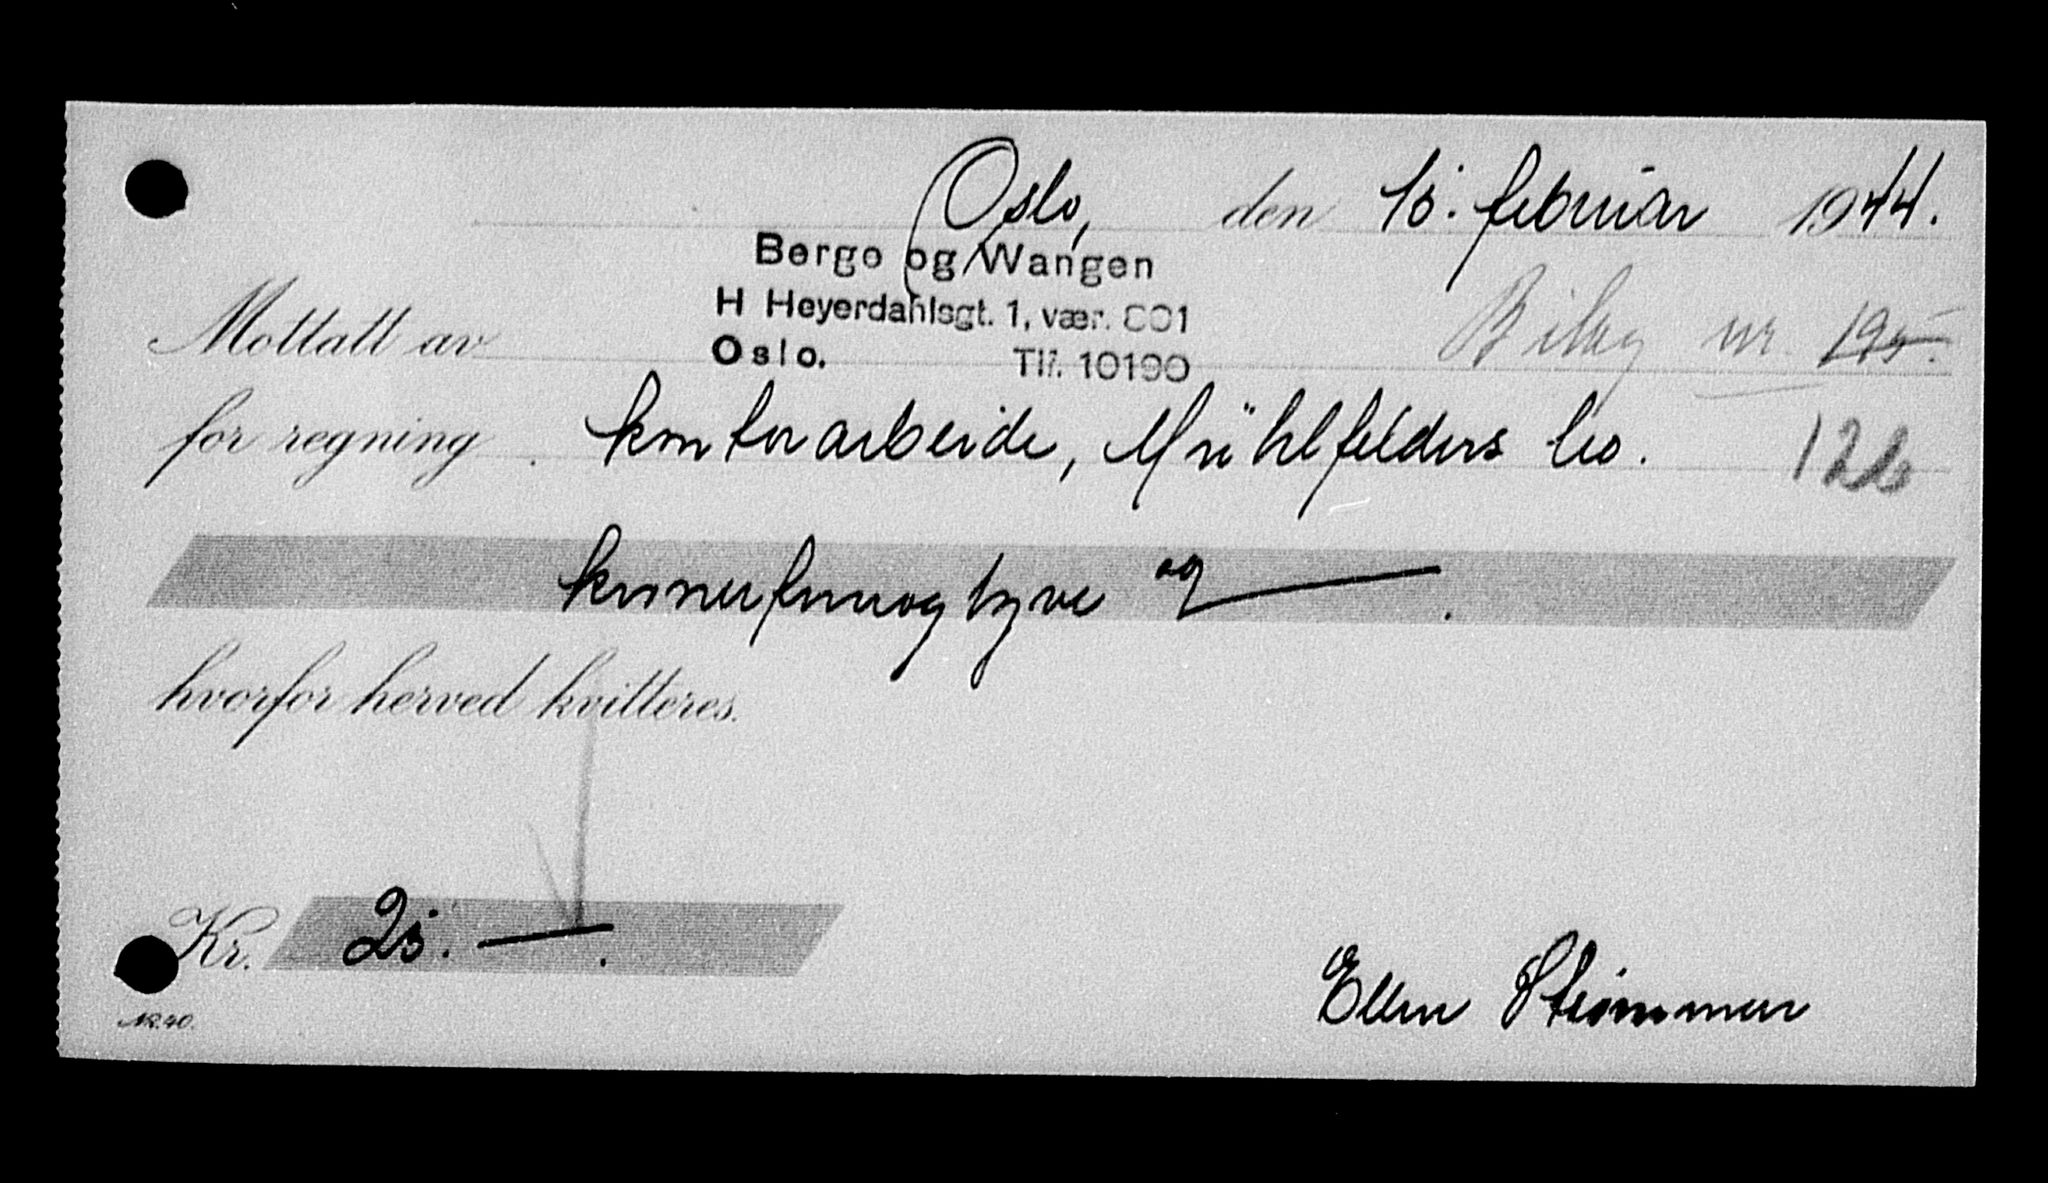 Oslo, den 15. februar 1944.
Bergo og Wangen
H Heyerdahlsgt. 1, vær. 801
Mottatt av Oslo. Tlf. 10190 Bilag nr. 195.
for regning kontorarbeide, Mühlfelders bo. 126
kroner femogtyve og
hvorfor herved kvitteres.
Kr. 25. —.
Ellen
NR.40.